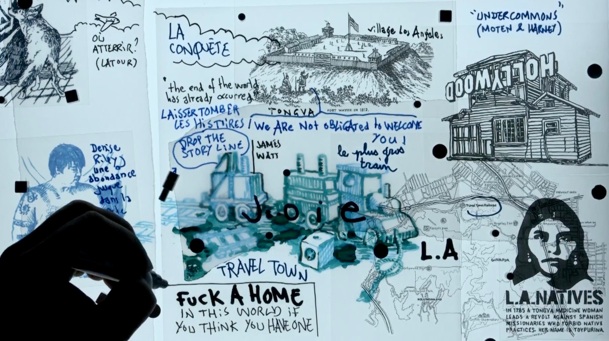 OÙ
ATTERRIR?
(LATOUR)
LA
CONQUETE
village Los Angeles
"UNDERCOMMONS"
(MOTEN & HARNEY)
HOLLYWOOD
"the end of the world
has already occurred"
LAISSER TOMBER
LES HISTOIRES
DROP THE
STORY LINE
TONGVA
WE ARE NOT OBLIGATED TO WELCOME
YOU!
JAMES
WATT
le plus gros
train
Denise
une
abondance
joie
L.A
TRAVEL TOWN
FUCK A HOME
IN THIS WORLD IF
YOU THINK YOU HAVE ONE
L.A. NATIVES
IN 1785 A TONGVA MEDICINE WOMAN
LEADS A REVOLT AGAINST SPANISH
MISSIONARIES WHO FORBID NATIVE
PRACTICES. HER NAME IS TOYPURINA.